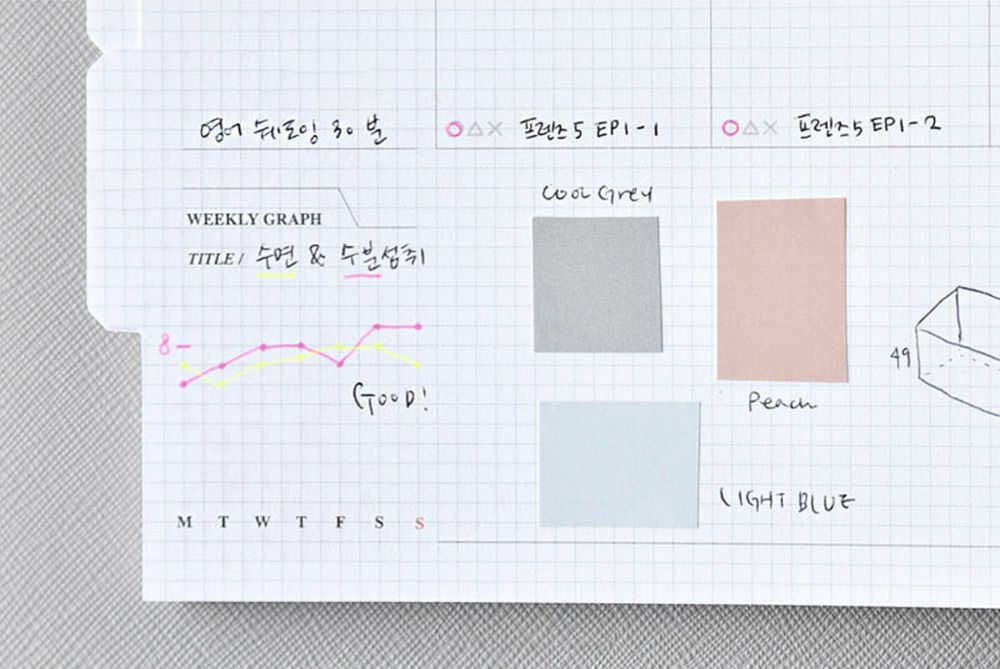 영어 쉐도잉 30분
프렌즈5 EP1-1
프렌즈5 EP1-2
WEEKLY GRAPH
TITLE / 수면 & 수분섭취
8
GOOD!
M T W T F S S
Cool Grey
Peach
LIGHT BLUE
49